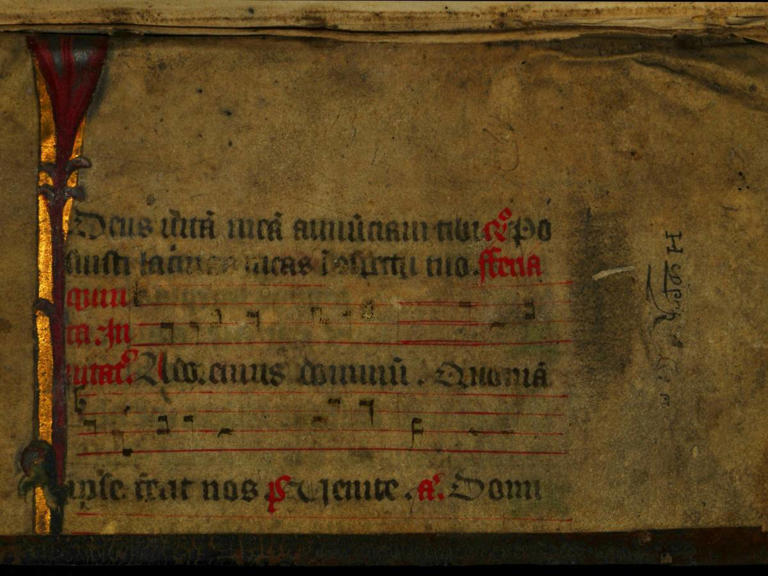 Deus vitā meā annūciavi tibi. ℟. Po
suisti lacrimas meas ī ɔspectu tuo. fferia
quin
ta. In
vitat. Adoremus dominū. Quoniā
ipse fecit nos ps Venite. a. Domi